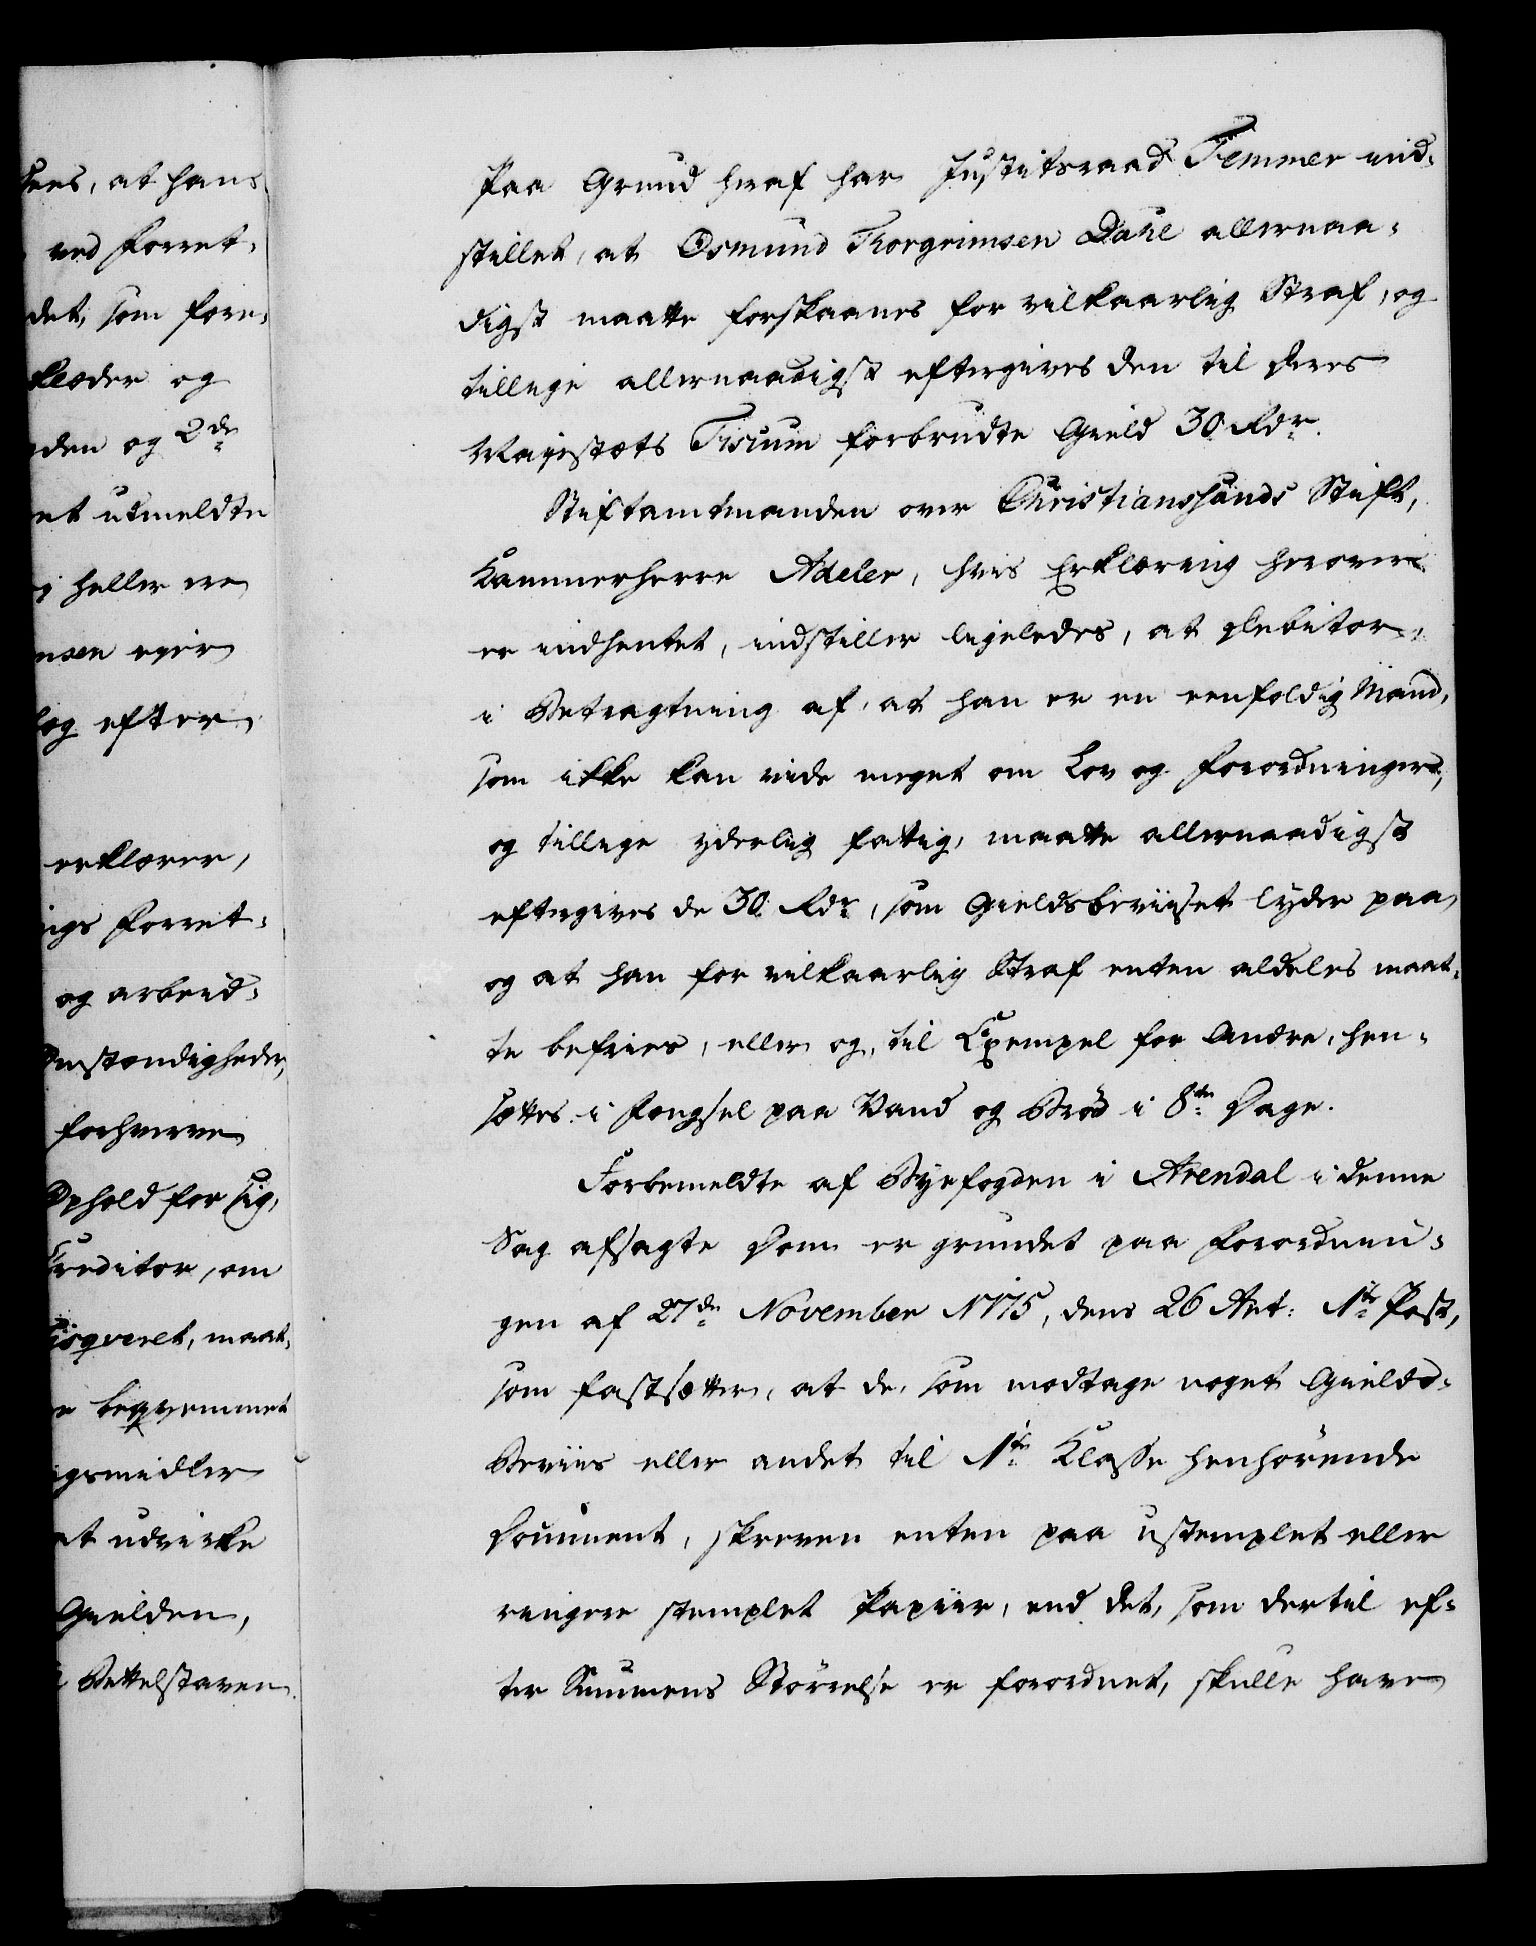 sees, at hans
ved Forret-
det, som fore-
klæder og
og 2de
et udmeldte
heller ere
nsen ejer
og efter
erklærer,
ngs Forret-
og arbeid-
Omstændigheder,
forhverve
Ophold for sig,
Creditor, om
isqveret, maat-
beqvemmet
gsmidler
at udvirke
Gielden,
Bettelstaven.
Paa Grund heraf har Justitsraad Femmer ind-
stillet, at Osmund Thorgrimsen Dahl allernaa-
digst maatte forskaanes for vilkaarlig Straf, og
tillige allernaadigst eftergives den til Deres
Majestæts Fiscum forbrudte Gield 30 Rdr.
Stiftamtmanden over Christianssands Stift,
Kammerherre Adeler, hvis Erklæring herover
er indhentet, indstiller ligeledes, at Debitor,
i Betragtning af, at han er en eenfoldig Mand,
som ikke kan vide meget om Lov og Forordninger,
og tillige yderlig fattig, maatte allernaadigst
eftergives de 30 Rdr, som Gieldsbeviiset lyder paa,
og at han for vilkaarlig Straf enten aldeles maat-
te befries, eller og, til Exempel for Andre, hen-
sættes i Fængsel paa Vand og Brød i 8te Dage.
Forbemeldte af Byefogden i Arendal i denne
Sag afsagte Dom er grundet paa Forordnin-
gen af 27de November 1775, dens 26 Art: 1te Post,
som fastsætter, at de, som modtage noget Gields-
Beviis eller andet til 1te Klasse henhörende
Document, skreven enten paa ustemplet eller
ringere stemplet Papiir, end det, som dertil ef-
ter Summens Störrelse er forordnet, skulle have